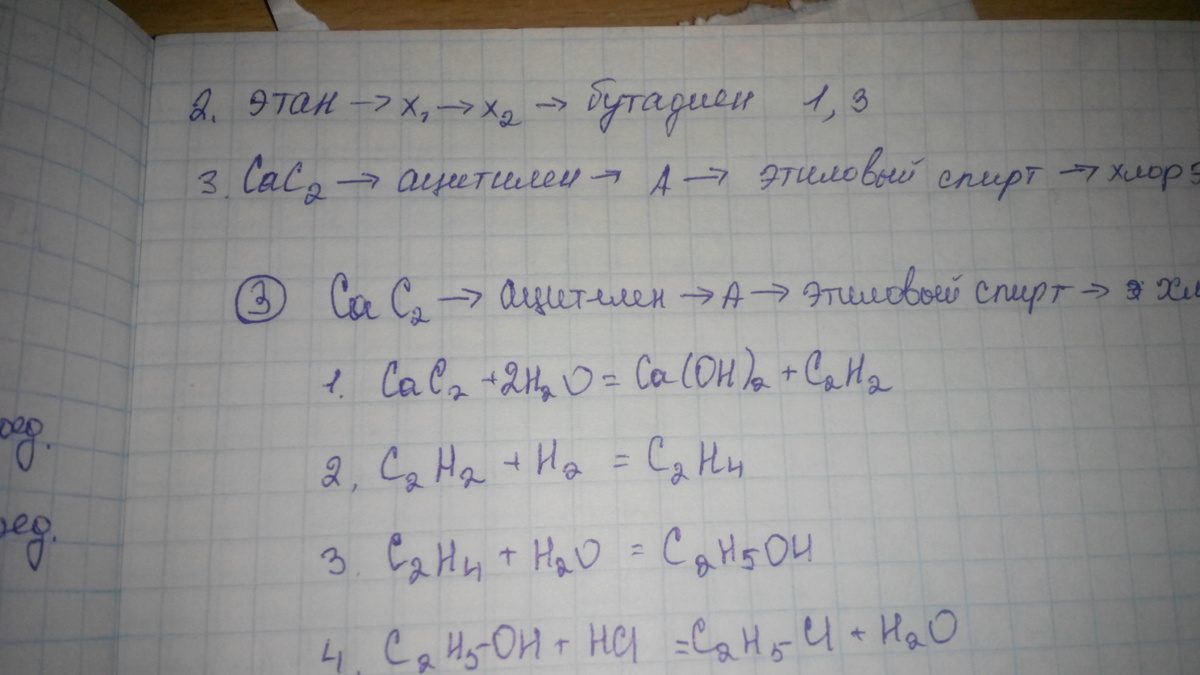 2. этан → x₁ → x₂ → бутадиен 1,3
3. CaC₂ → ацетилен → А → этиловый спирт → хлорэ
③ CaC₂ → ацетилен → А → этиловый спирт → хл
1. CaC₂ + 2H₂O = Ca(OH)₂ + C₂H₂
2, C₂H₂ + H₂ = C₂H₄
оед.
3. C₂H₄ + H₂O = C₂H₅OH
оед.
4. C₂H₅-OH + HCl = C₂H₅-Cl + H₂O